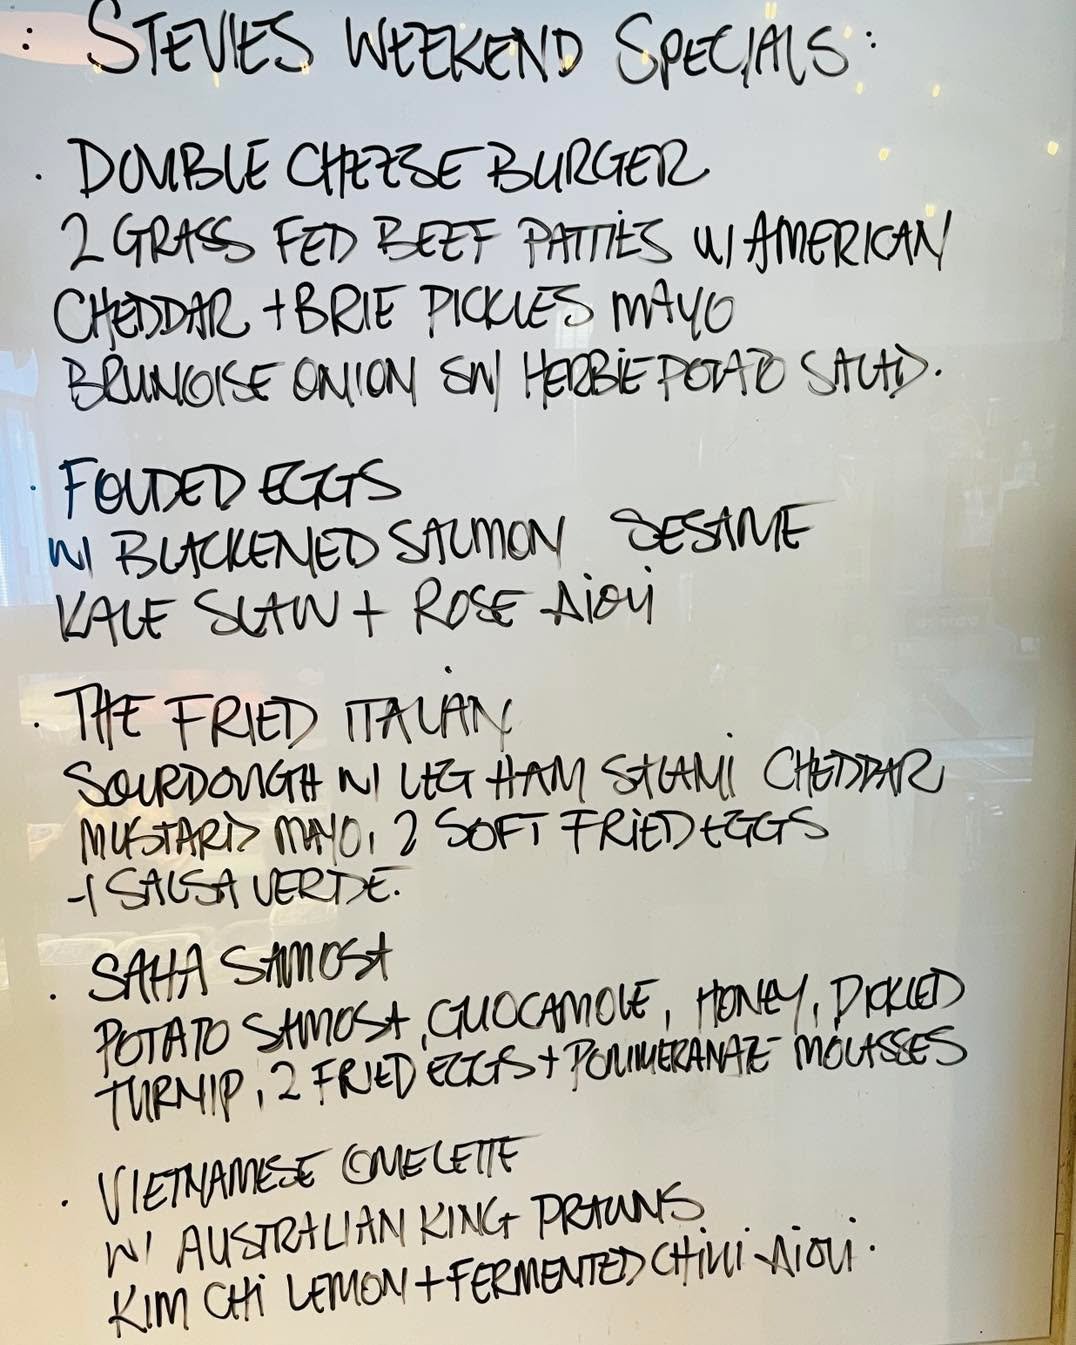 : STEVIES WEEKEND SPECIALS:
· DOUBLE CHEESE BURGER
2 GRASS FED BEEF PATTIES W/ AMERICAN
CHEDDAR + BRIE PICKLES MAYO
BRUNOISE ONION SW/ HERBIE POTATO SALAD.
· FOLDED EGGS
W/ BLACKENED SALMON SESAME
KALE SLAW + ROSE AIOLI
· THE FRIED ITALIAN
SOURDOUGH W/ LEG HAM SALAMI CHEDDAR
MUSTARD MAYO, 2 SOFT FRIED EGGS
+ SALSA VERDE.
· SAHA SAMOSA
POTATO SAMOSA, GUOCAMOLE, HONEY, PICKLED
TURNIP, 2 FRIED EGGS + POMMERANATE MOLASSES
· VIETNAMESE OMELETTE
W/ AUSTRALIAN KING PRAWNS
KIM CHI LEMON + FERMENTED CHILLI AIOLI.